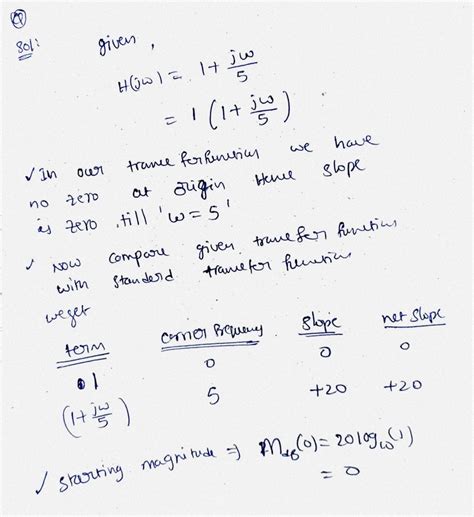 Sol:
given,
H(jω) = 1 + jω/5
= 1 (1 + jω/5)
✓ In our transferfunction we have
no zero at origin Hence slope
is zero till 'ω = 5'
✓ Now compare given transfer function
with standerd transfer function
we get
term corner frequency slope net slope
1 0 0 0
(1 + jω/5) 5 +20 +20
✓ starting magnitude ⇒ Mdb(0) = 20 log10(1)
= 0